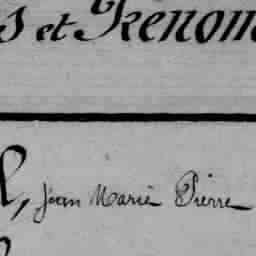 s et Prénom
Jean Marie Pierre